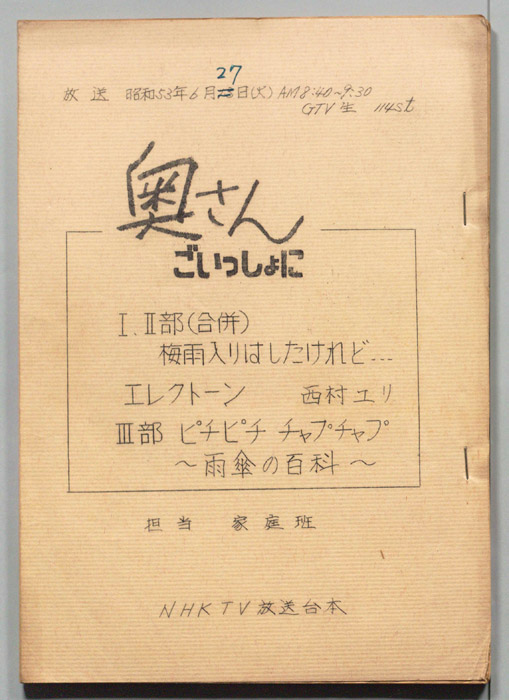 27
放送 昭和53年6月 日(火) AM8:40~9:30
GTV 生 114st
奥さん
ごいっしょに
I、II部(合併)
梅雨入りはしたけれど…
エレクトーン 西村エリ
III部 ピチピチ チャプチャプ
～雨傘の百科～
担当 家庭班
NHKTV放送台本